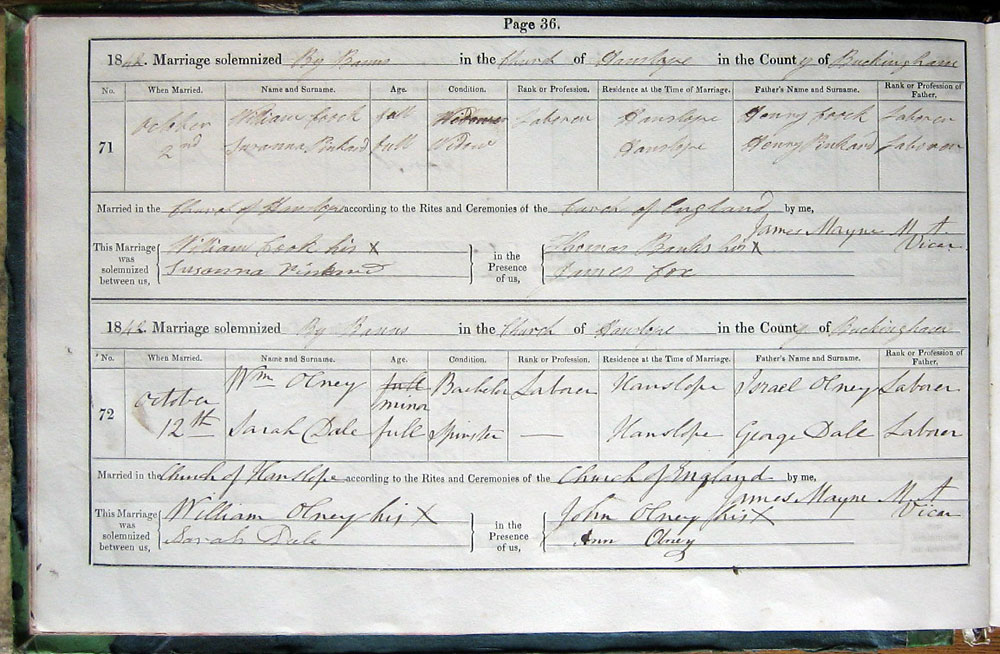 Page 36.
1842. Marriage solemnized By Banns in the Church of Hanslope in the County of Buckingham
No. When Married. Name and Surname. Age. Condition. Rank or Profession. Residence at the Time of Marriage. Father's Name and Surname. Rank or Profession of Father.
71 October 2nd William Cook full Widower Laborer Hanslope Henry Cook Laborer
Susanna Pinkard full Widow Hanslope Henry Pinkard Laborer
Married in the Church of Hanslope according to the Rites and Ceremonies of the Curch of England by me,
James Mayne M A Vicar
This Marriage was solemnized between us, William Cook his X in the Presence of us, Thomas Banks his X
Susanna Pinkard James Cox
1842. Marriage solemnized By Banns in the Church of Hanslope in the County of Buckingham
No. When Married. Name and Surname. Age. Condition. Rank or Profession. Residence at the Time of Marriage. Father's Name and Surname. Rank or Profession of Father.
72 October 12th Wm Olney full minor Bachelor Laborer Hanslope Israel Olney Laborer
Sarah Dale full Spinster — Hanslope George Dale Laborer
Married in the Church of Hanslope according to the Rites and Ceremonies of the Church of England by me,
James Mayne M A Vicar
This Marriage was solemnized between us, William Olney his X in the Presence of us, John Olney his X
Sarah Dale Ann Olney